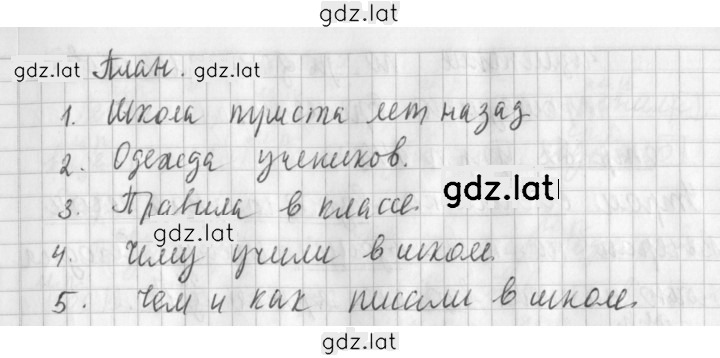 gdz.lat
gdz.lat План. gdz.lat
1. Школа триста лет назад
2. Одежда учеников.
3. Правила в классе. gdz.lat
gdz.lat
4. Чему учили в школе.
5. Чем и как писали в школе.
gdz.lat